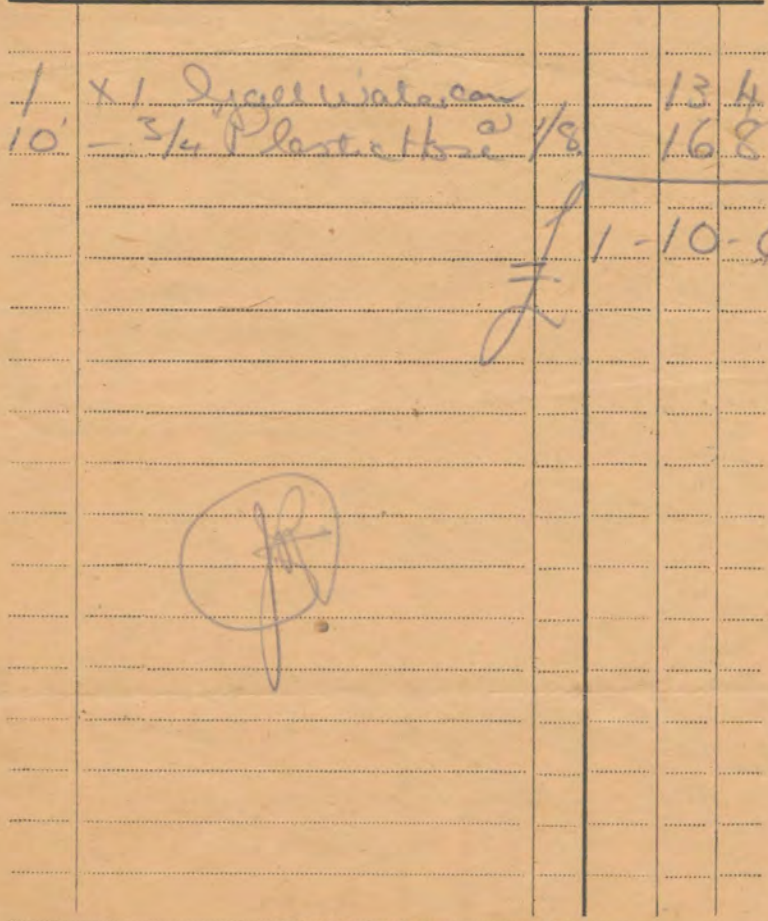 1 x 1 2 gall Water can 13 4
10' - 3/4 Plastic Hose @ 1/8 16 8
£ 1-10-0